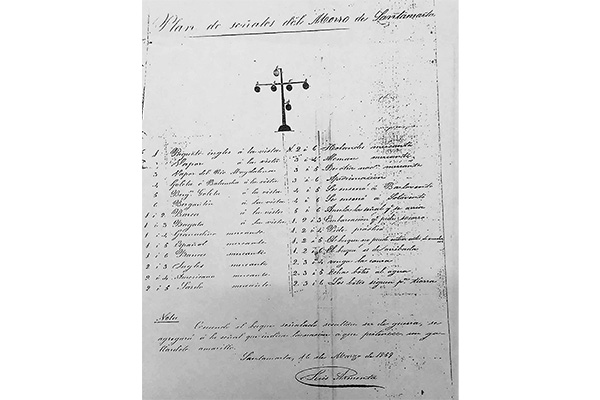 Plan de señales del Morro de Santamarta
1 Paquete ingles á la vista
2 Vapor á la vista
3 Vapor del Rio Magdalena
4 Goleta ó Balandra á la vista
5 Berg.n Goleta á la vista
6 Bergantin á la vista
1 i 2 Barca á la vista
1 i 3 Fragata á la vista
1 i 4 Granadino mercante
1 i 5 Español mercante
1 i 6 Frances mercante
2 i 3 Ingles mercante
2 i 4 Americano mercante
2 i 5 Sardo mercante
2 i 6 Holandes mercante
3 i 4 Aleman mercante
3 i 5 mercante
3 i 6 Aproximacion
4 i 5 Se á Barlovento
4 i 6 Se á Sotavento
5 i 6 Anula la señal q.e se
1. 2 i 3 Embarcacion q.e pide socorro
1. 2 i 4 Pide práctico
1. 2 i 5 El buque no puede
1. 2 i 6 El buque
2. 3 i 4 la
2. 3 i 5 botes al agua
2. 3 i 6 Los botes p.a tierra
Nota
Cuando el buque señalado sea de guerra, se
agregará á la señal que indica la nacion á que pertenece un ga-
llardete amarillo.
Santamarta, de Marzo de 1849
Luis